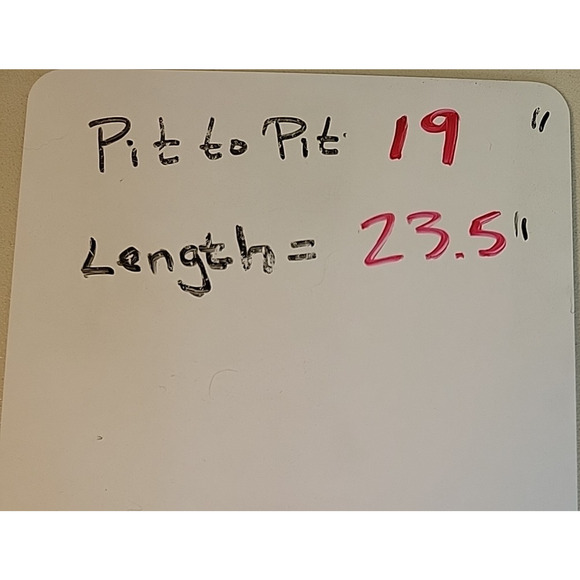 Pit to Pit 19 "
Length = 23.5"